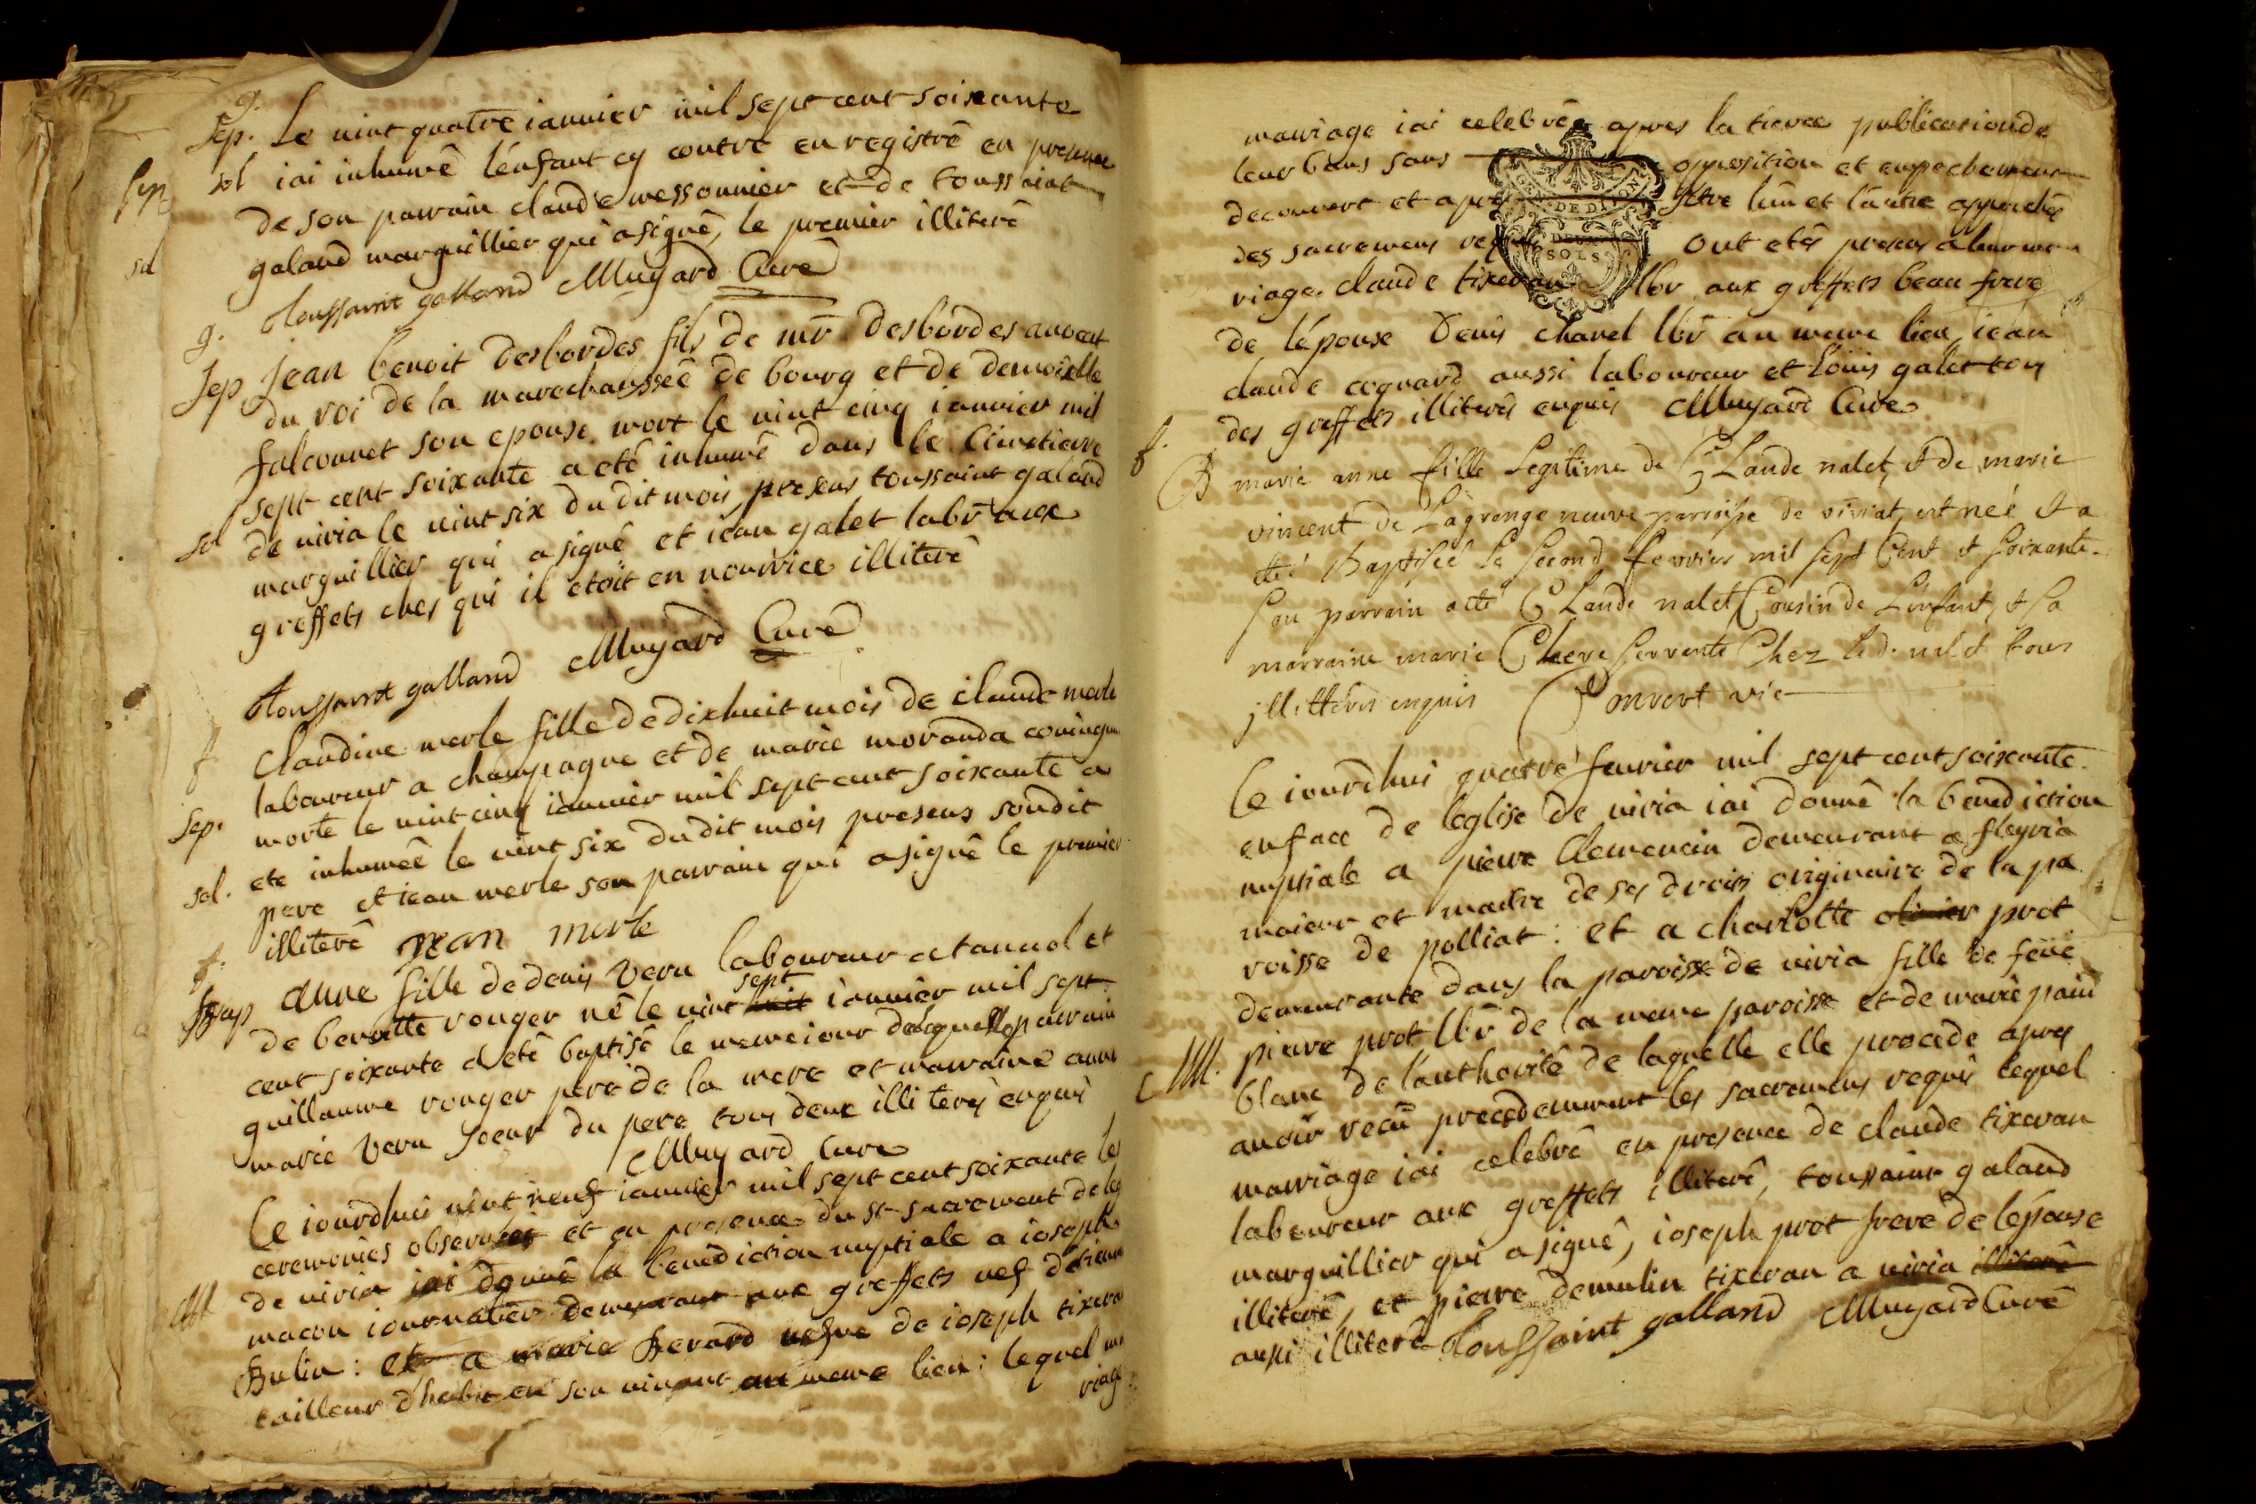 g.
sep. Le vint quatre ianvier mil sept cent soixante
sol iai inhumé l'enfant cy contre enregistré en presence
de son parrain claude messonnier et de toussaint
galand marguillier qui a signé, le premier illiteré
Toussaint galland Muyard Curé
sep
sol
g.
sep Jean benoit Desbordes fils de mr Desbordes avocat
du roi de la marechaussée de bourg et de demoiselle
falconnet son epouse mort le vint cinq ianvier mil
sept cent soixante a eté inhumé dans le Cimetierre
sol de viria le vint six du dit mois, presens toussaint galand
marguillier qui a signé et iean galet labr aux
greffets ches qui il etoit en nourrice illiteré
Toussaint galland Muyard Curé
f Claudine merle fille de dixhuit mois de claude merle
laboureur a champagne et de marie moranda
sep. morte le vint cinq ianvier mil sept cent soixante a
sol. eté inhumée le vint six du dit mois presens son dit
pere et iean merle son parrain qui a signé le premier
illiteré jean merle
f.
bap Anne fille de denis veru laboureur a tannol et
de benoitte rouger né le vint huit sept ianvier mil sept
cent soixante a eté baptisé le meme iour parrain
guillaume rouger pere de la mere et marraine anne
marie veru soeur du pere tous deux illiterés enquis
Muyard Curé
Le iourdhui vint neuf ianvier mil sept cent soixante les
ceremonies observées et en presence du st sacrement de leg
de viria iai donné la benediction nuptiale a ioseph
M macon iournalier demeurant aux greffets
Bulin: et a marie Berard vefve de ioseph tixeran
tailleur d'habit en son vivant au meme lieu: lequel ma
riage
mariage iai celebré apres la tierce publication de
leur bans sans opposition et empechement
decouvert et apres s'etre l'un et l'autre approchés
des sacremens requis ont etés presens a leur ma
riage. claude tixeran lbr aux greffets beau frere
de l'épouse Denis chanel lbr au meme lieu iean
claude cognard aussi laboureur et Loüis galet tous
des greffets illiterés enquis Muyard Curé
GEN. DE DIJON
DEUX
SOLS
f.
B marie anne fille Legitime de Claude nalet, & de marie
vincent de Lagrange neuve parroise de viriat, est neé & a
eté Baptisée le second fevrier mil sept Cent & soixante.
son parrain a eté Claude nalet Cousin de L'enfant, & sa
marraine marie Clere servente Chez led. nalet tous
jllitterés enquis Convert vic
Le iourdhui quatre fevrier mil sept cent soixante
en face de leglise de viria iai donné la benediction
nuptiale a pierre Clemencin demeurant a fleyria
maieur et maitre de ses droits originaire de la pa
roisse de polliat: et a charlotte olivier prot
demeurante dans la paroisse de viria fille de feüe
M. pierre prot lbr de la meme paroisse et de marie pain
blanc de l'authorité de laquelle elle procede apres
avoir recu precedemment les sacremens requis lequel
mariage iai celebré en presence de claude tixeran
laboureur aux greffets illiteré, toussaint galand
marguillier qui a signé, ioseph prot frere de l'épouse
illiteré, et pierre demulin tixeran a viria illiteré
aussi illiteré Toussaint galland Muyard Curé